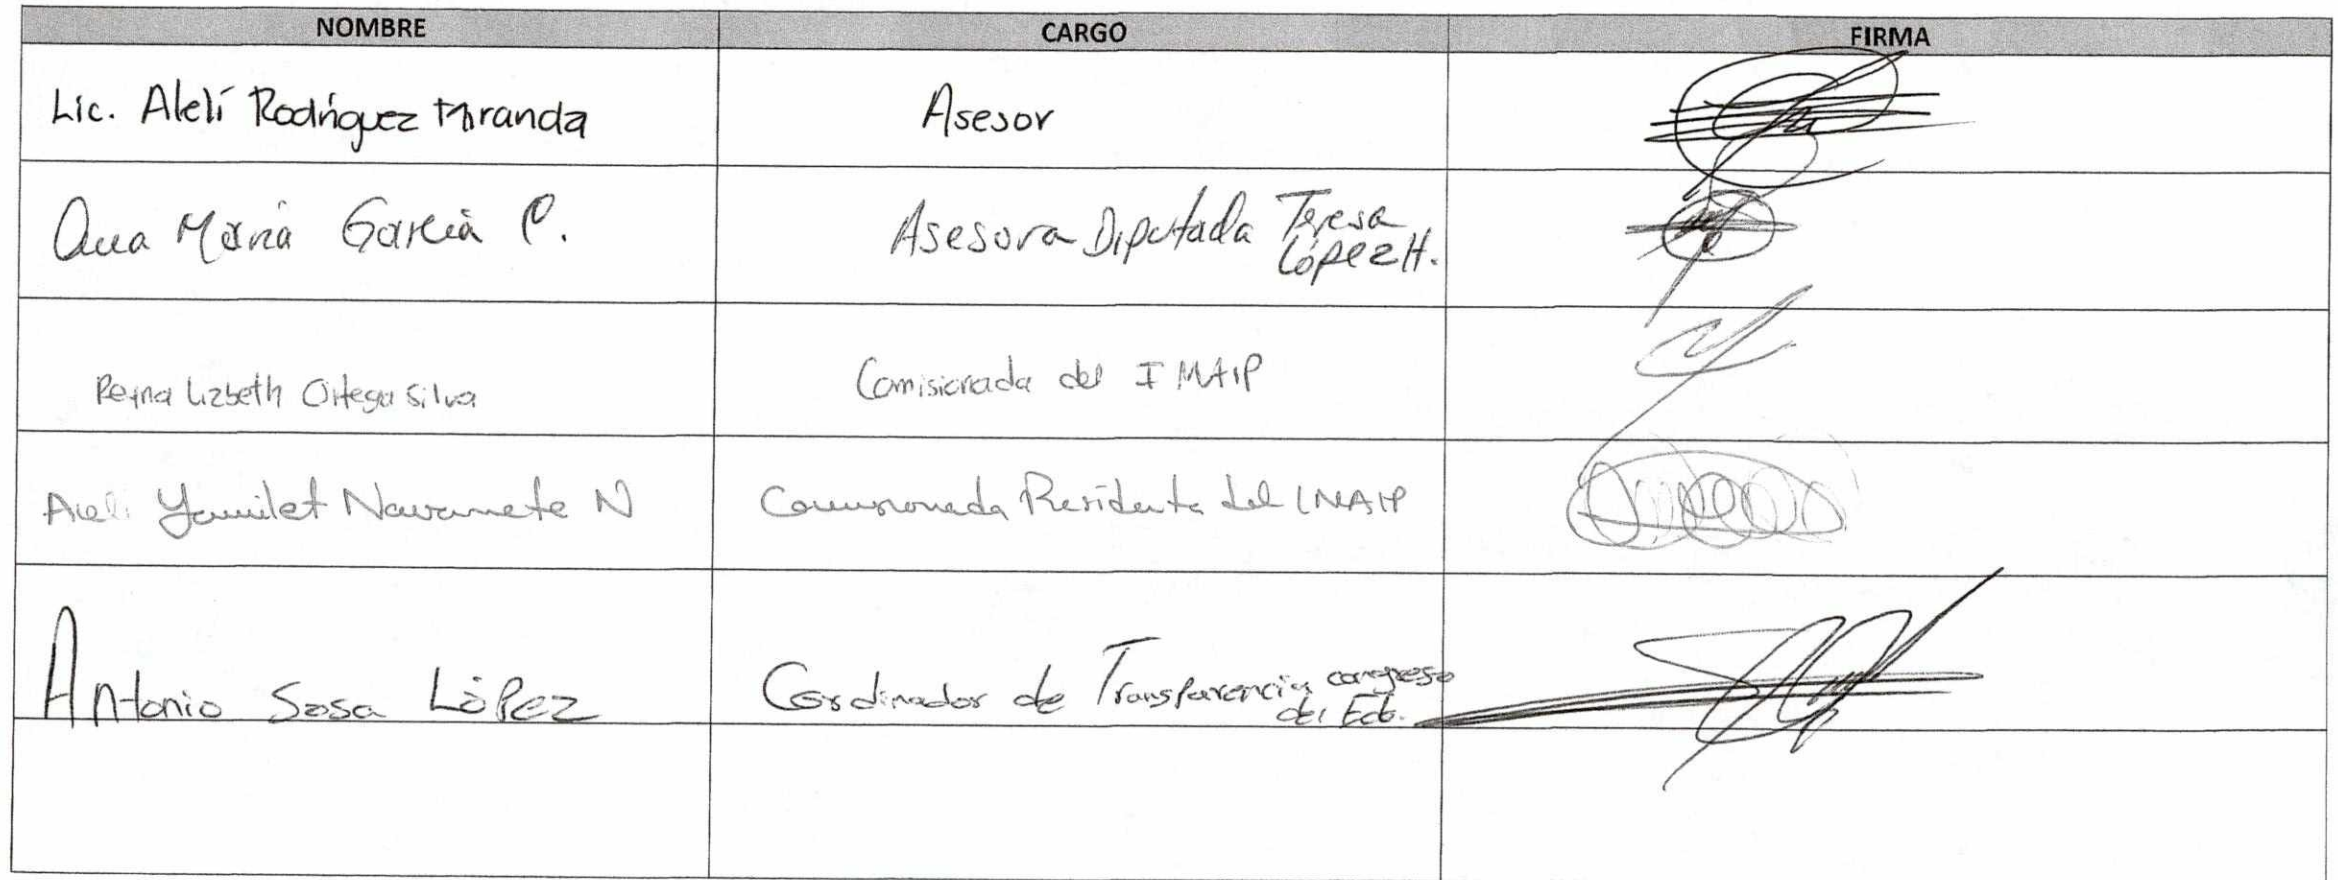 NOMBRE CARGO FIRMA
Lic. Alelí Rodríguez Miranda Asesor
Ana María García P. Asesora Diputada Teresa
López H.
Reyna Lizbeth Ortega Silva Comisionada del IMAIP
Areli Yamilet Navarrete N Comisionada Presidenta del IMAIP
Antonio Sosa López Cordinador de Transparencia congreso
del Edo.